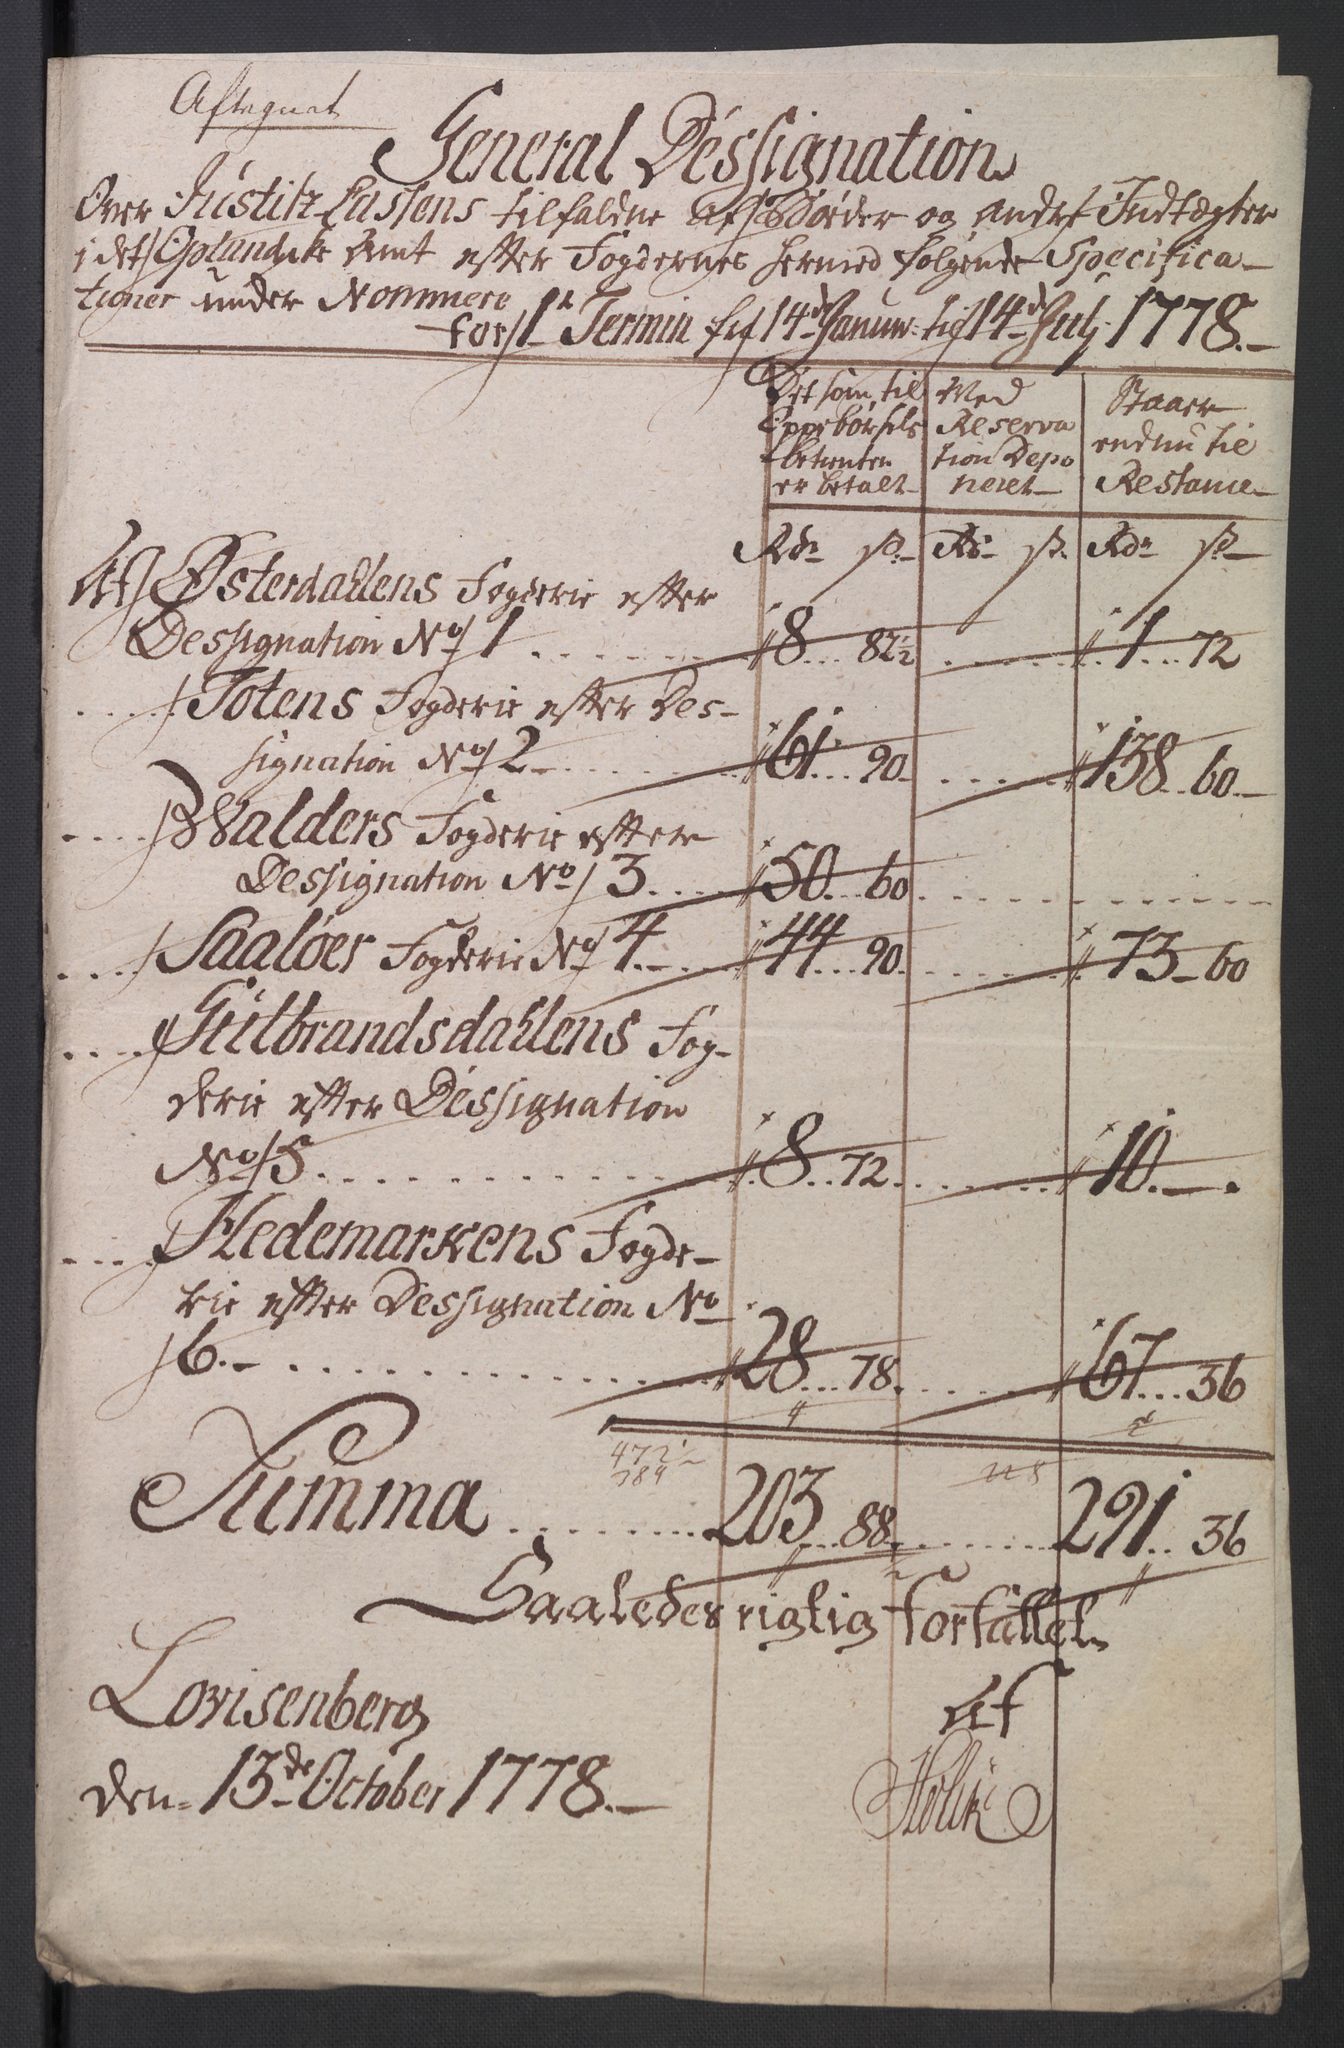 Aftegnet
General Dessignation
Over Justitz Cassens tilfaldne af Bøder og andre Indtægter
i det Oplandske Amt efter Fogdernes hermed følgende Specifica-
tioner under Nommere
for 1t Termin fra 14d Januar: til 14d July 1778.-
Det som til Med Staaer
Oppebørsels Reserva endnu til
betienten tion Depo Restance-
er betalt- neret-
Rdr ß.- Rdr ß. Rdr ß-
Af Østerdallens Fogderie efter
Dessignation No 1 . . . . . 8... 82½ . . . . . 1... 72
. . . . Totens Fogderie efter Des-
signation No 2 . . . . . . 61... 90- . . . . 138.. 60.-
. . . . Walders Fogderie efter
Dessignation No 3 . . . . 50... 60 . . . . . . . .
. . . . Saaløer Fogderie No 4.- . . . 44... 90. . . . . . 73- 60
. . . . Gulbrandsdallens Fog-
derie efter Dessignation
No 5. . . . . . . . . . . 8.. 72. . . . . . 10.-.
. . . . Hedemarkens Fogde-
rie efter Dessignation No
6.- . . . . . . . . . . . 28... 78. . . . . . 67... 36
472½
384
Summa . . . . . . . . 203... 88. . . . . . . 291.. 36
Saaledes rigtig forfattet
af
Lovisenberg
den 13de October 1778.-
Holck